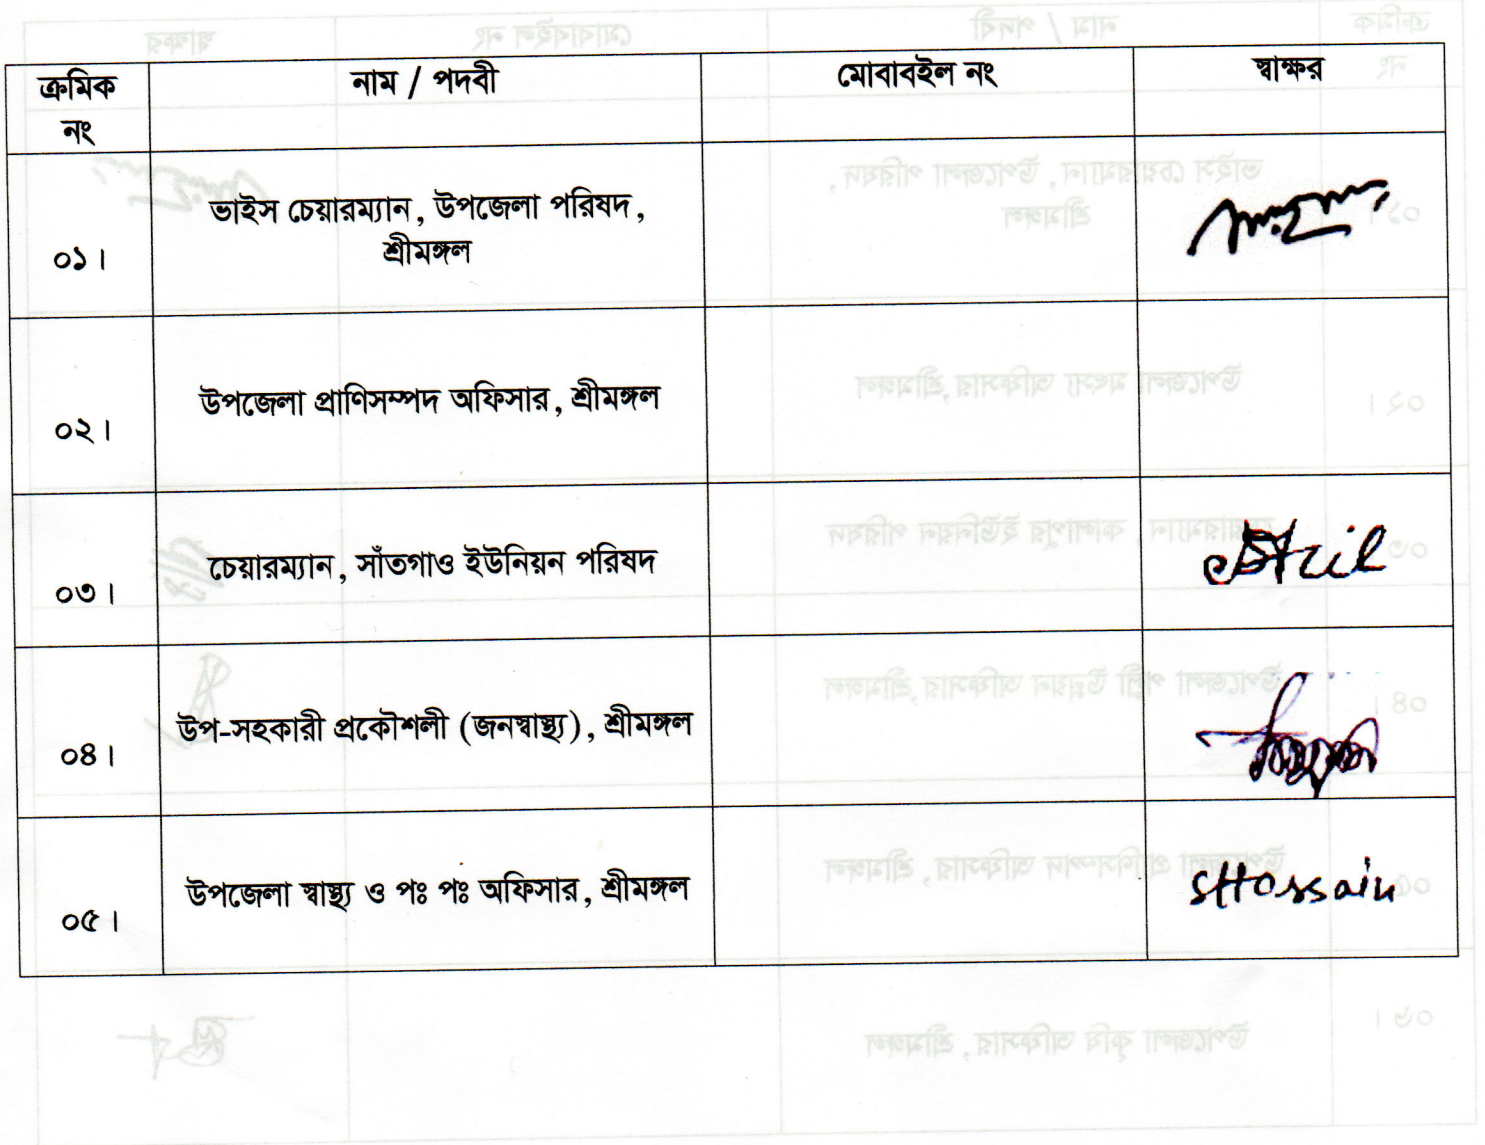 ক্রমিক নং
নাম / পদবী
মোবাবইল নং
স্বাক্ষর
০১।
ভাইস চেয়ারম্যান, উপজেলা পরিষদ,
শ্রীমঙ্গল
০২।
উপজেলা প্রাণিসম্পদ অফিসার, শ্রীমঙ্গল
০৩।
চেয়ারম্যান, সাঁতগাও ইউনিয়ন পরিষদ
০৪।
উপ-সহকারী প্রকৌশলী (জনস্বাস্থ্য), শ্রীমঙ্গল
০৫।
উপজেলা স্বাস্থ্য ও পঃ পঃ অফিসার, শ্রীমঙ্গল
sHossain